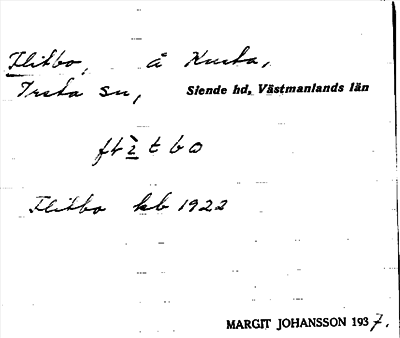 Flitbo, å Kusta,
Irsta sn, Siende hd, Västmanlands län
flìtbo
Flitbo kb 1922
MARGIT JOHANSSON 1937.